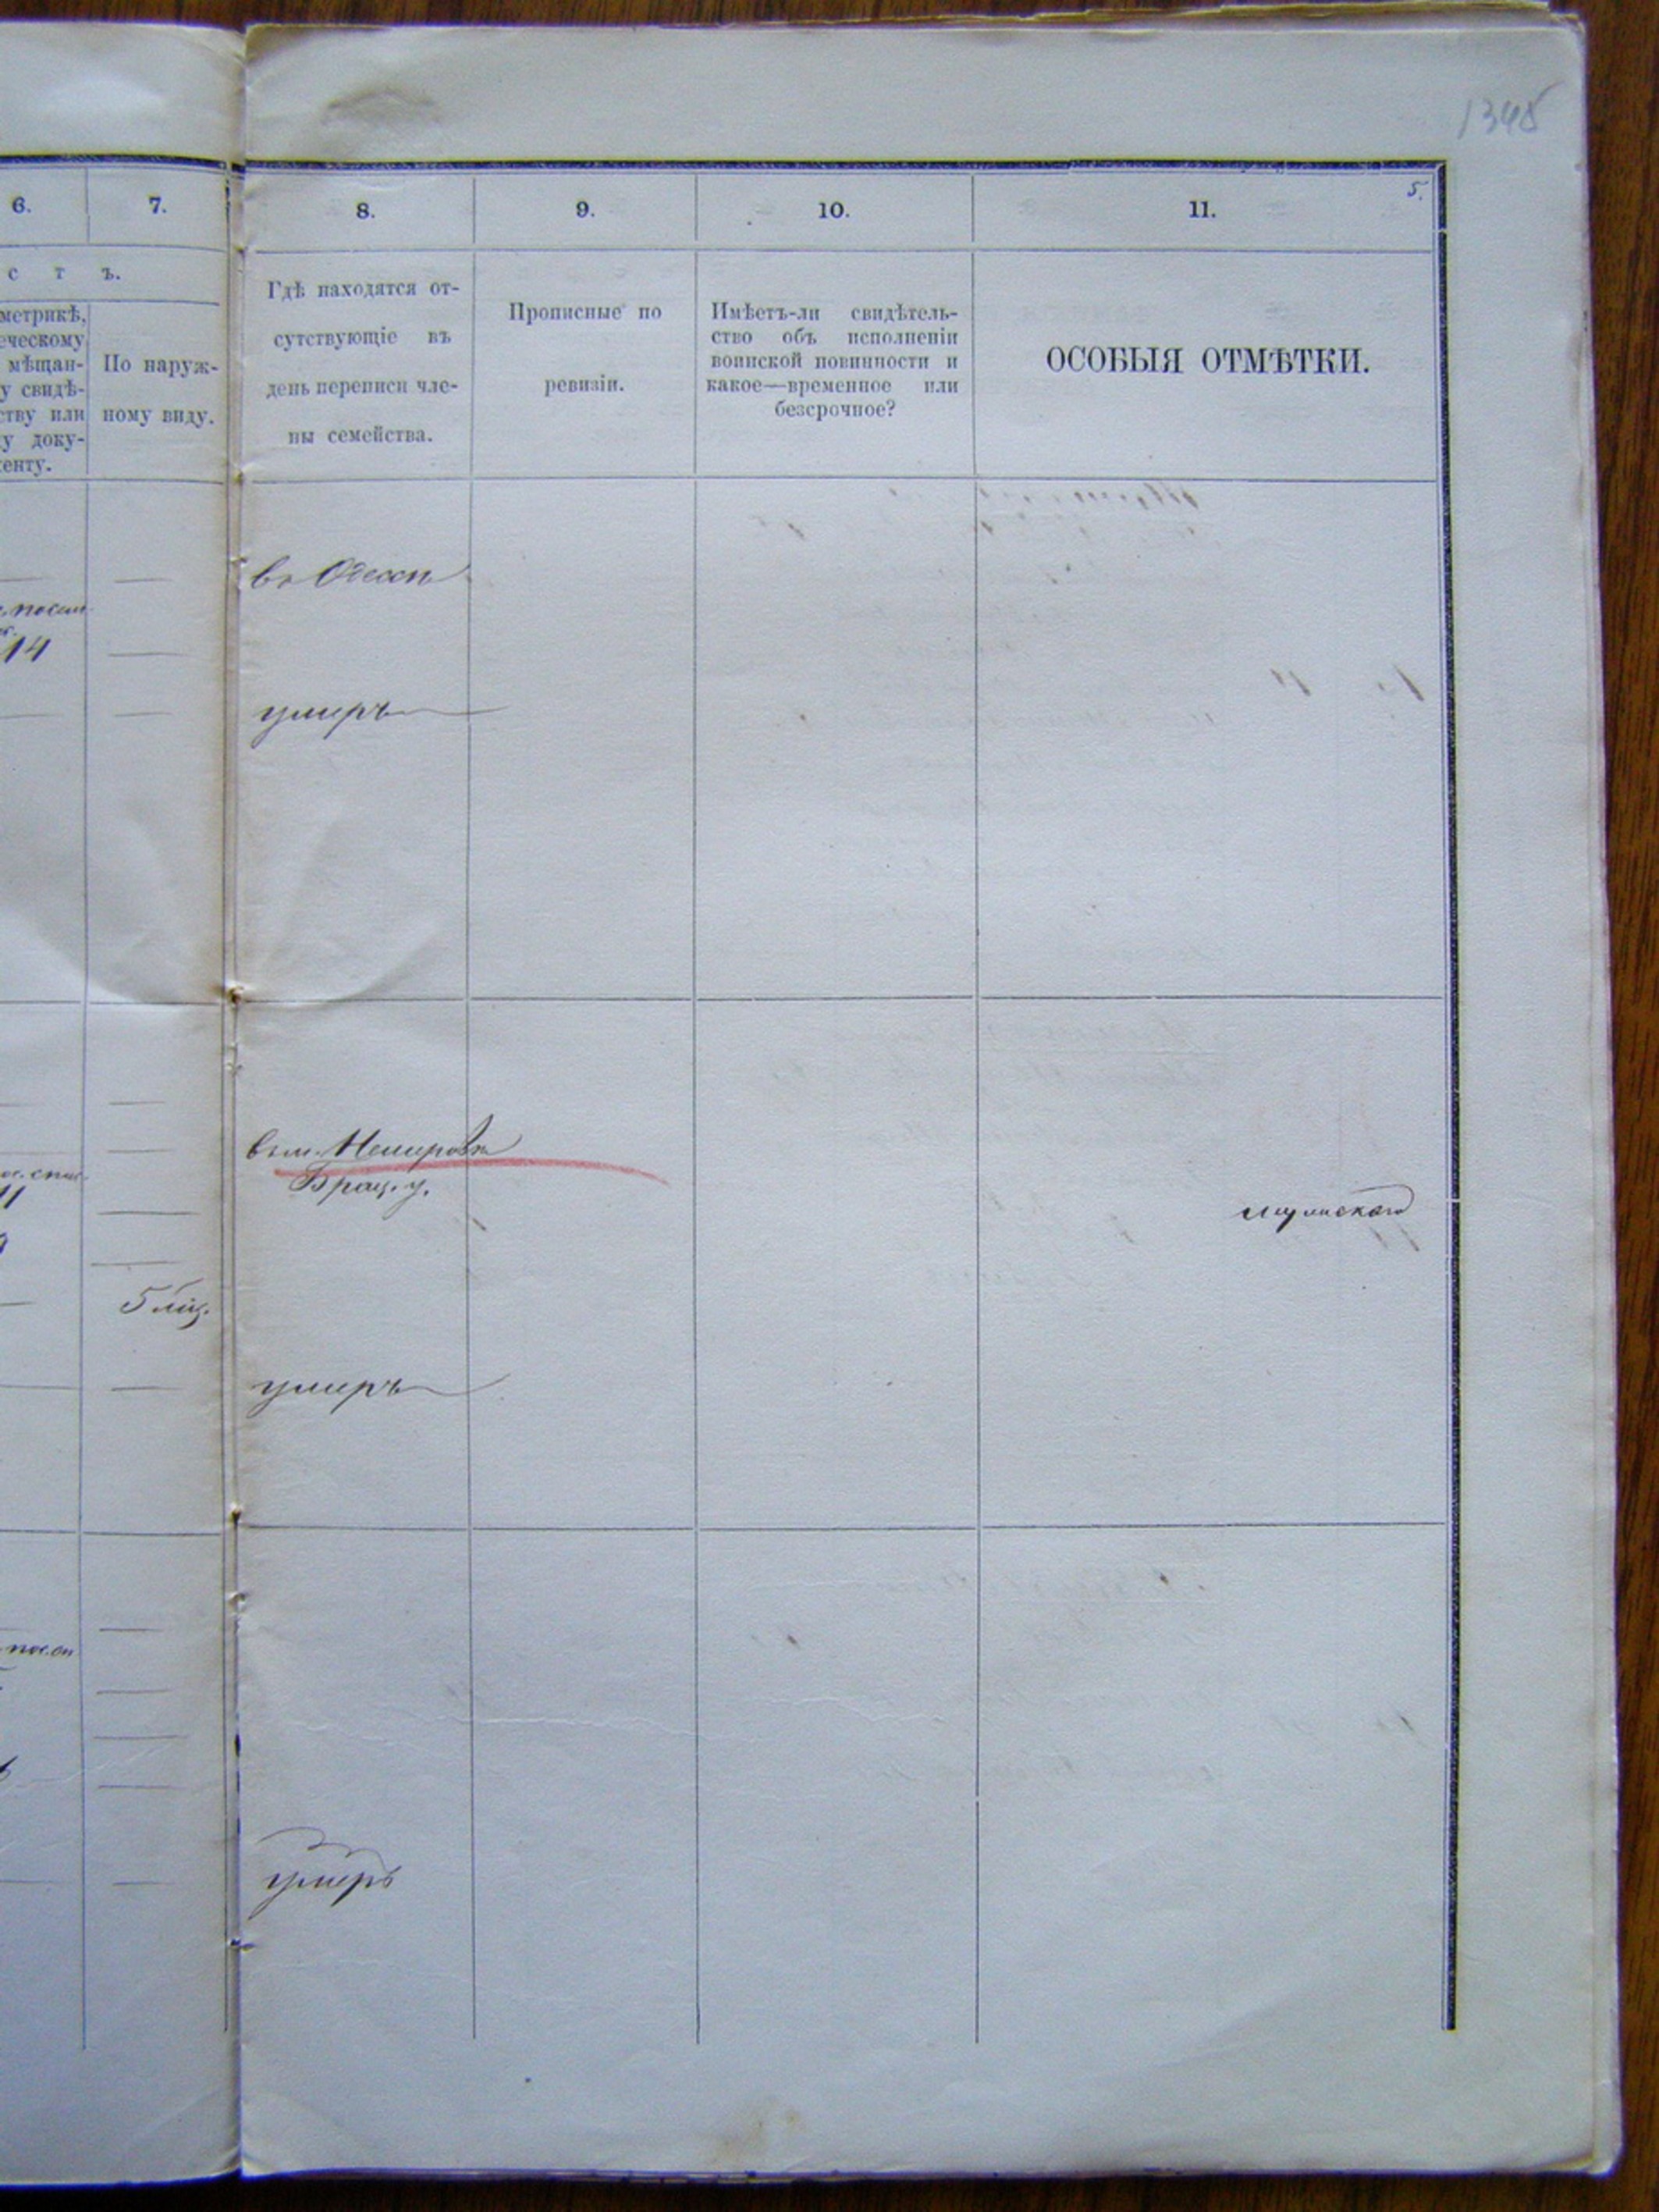 1345
5.
6. 7. 8. 9. 10. 11.
с т ъ.
метрикѣ,
ческому
мѣщан-
у свидѣ-
ству или
у доку-
енту.
По наруж-
ному виду.
Гдѣ находятся от-
сутствующіе въ
день переписи чле-
ны семейства.
Прописные по
ревизіи.
Имѣетъ-ли свидѣтель-
ство объ исполненіи
воинской повинности и
какое—временное или
безсрочное?
ОСОБЫЯ ОТМѢТКИ.
въ Одессѣ
14
умеръ
въ м. Немировѣ
Брац. у.
11
9
5 мѣс.
умеръ
умеръ